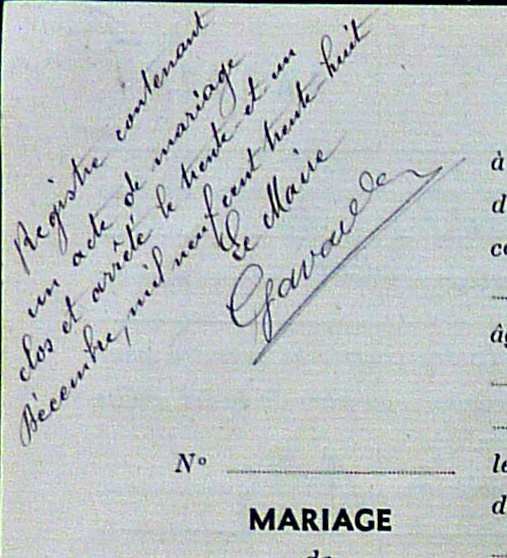 Registre contenant
un acte de mariage
clos et arrêté le trente et un
Décembre, mil neuf cent trente huit
Le Maire
à
d
co
âg
N°
le
d
MARIAGE
de